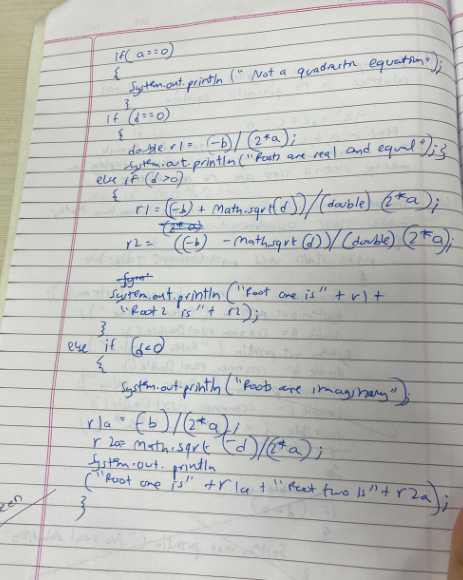 if( a==0)
{
System.out.println ("Not a quadractn equation");
}
if (d==0)
{
double r1 = (-b)/(2*a);
System.out.println("Roots are real and equal");}
else if (d>0)
{
r1 = ((-b) + Math.sqrt(d))/(double) (2*a);
(2*a)
r2 = ((-b) - Math.sqrt (d))/(double) (2*a);
System.out.println ("Root one is" + r1 +
"Root 2 is" + r2);
}
else if (d<0)
{
System.out.println ("Roots are imaginary");
r1a = (-b)/(2*a);
r2a = Math.sqrt (-d)/(2*a);
System.out. println
("Root one is" + r1a + "Root two is" + r2a);
}
zen